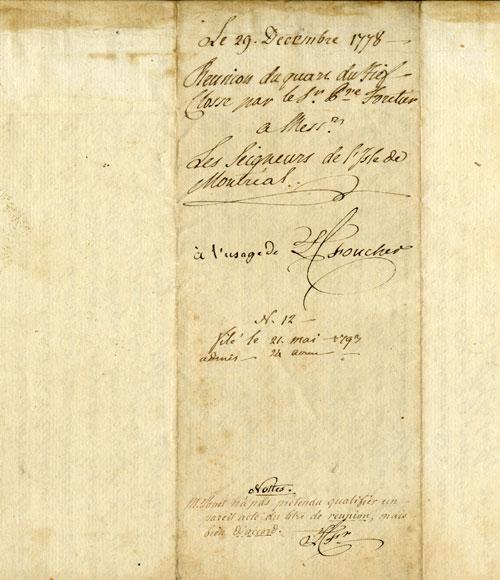 Le 29. Decembre 1778
Reunion du quart du Fief
Closse par le Sr. Pre Foretier
a Messrs
Les Seigneurs de l'Isle de
Montréal.
à l'usage de LC Foucher
N. 12
filé le 21. mai 1793
admis 24
Nottes.
n'a pas prétendu qualifier un
pareil acte du titre de reunion, mais
bien d'accord.